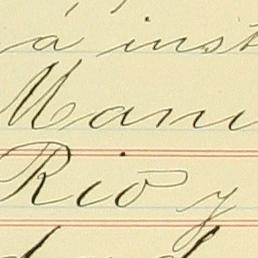 á inst
Manu
Rio y